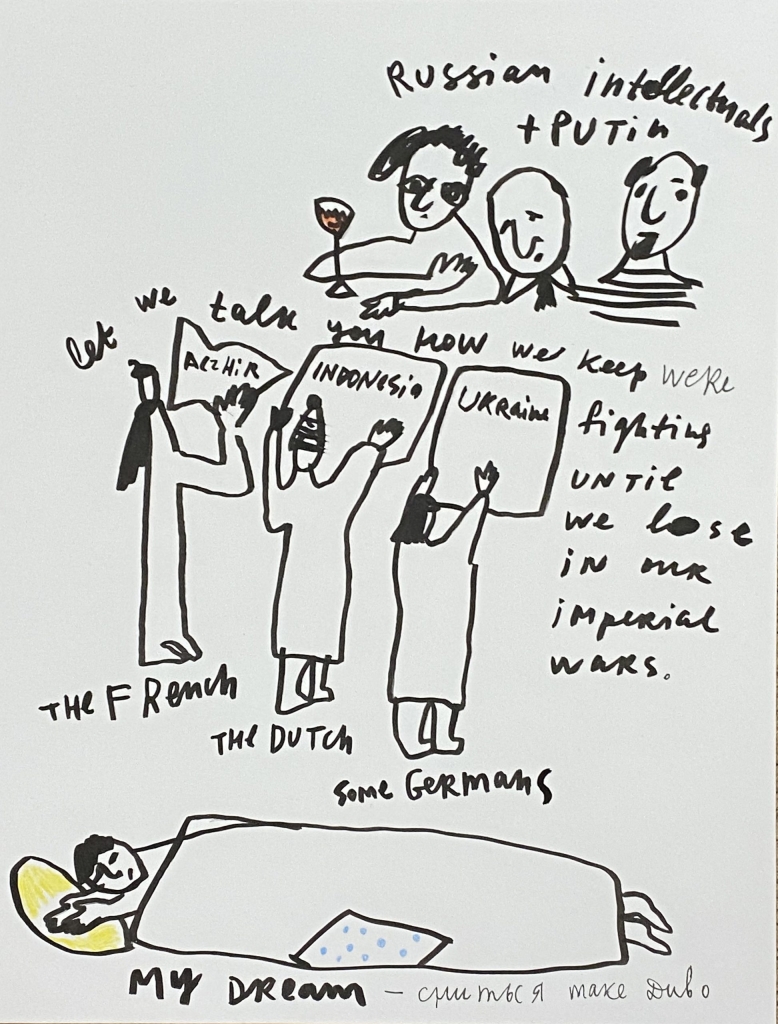 Russian intellectuals
+ PUTin
let we talk you how we keep were
fighting
UNTil
we lose
in our
imperial
wars.
ALZHiR
INDONESIA
UKRaine
THE FRench
THE DUTCh
some GeRmans
MY DReam – сниться таке диво